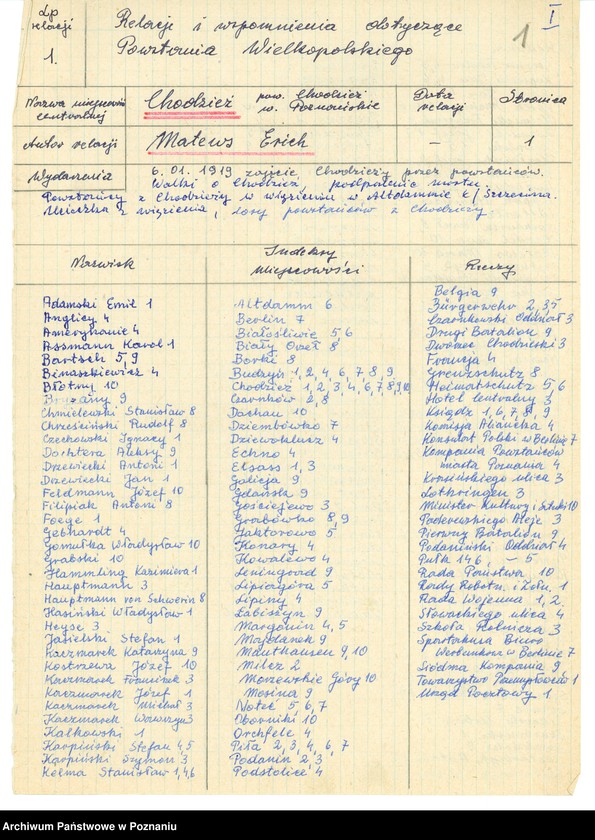 Lp relacji
1.
Relacje i wspomnienia dotyczące
Powstania Wielkopolskiego
1
I
Nazwa miejscowości centralnej
Chodzież
pow. Chodzież
w. Poznańskie
Data relacji
Stronica
Autor relacji
Mateus Erich
–
1
Wydarzenia
6.01.1919 zajęcie Chodzieży przez powstańców.
Walki o Chodzież, podpalenie mostu.
Powstańcy z Chodzieży w więzieniu w Altdammie k/Szczecina.
Ucieczka z więzienia, losy powstańców z Chodzieży.
Nazwisk
Indeksy
miejscowości
Rzeczy
Adamski Emil 1
Anglicy 4
Amerykanie 4
Assmann Karol 1
Bartsch 5, 9
Binaszkiewicz 4
Błotny 10
9
Chmielewski Stanisław 8
Chrześciński Rudolf 8
Czechowski Ignacy 1
Dochtera Aleksy 9
Drzewiecki Antoni 1
Drzewiecki Jan 1
Feldmann Józef 10
Filipiak Antoni 8
Foege 1
Gebhardt 4
Gomułka Władysław 10
Grabski 10
Hammling Kazimiera 1
Hauptmann 3
Hauptmann von Schwerin 8
Hasiński Władysław 1
Heyse 3
Jasielski Stefan 1
Kaczmarek Katarzyna 9
Kostrzewa Józef 10
Kaczmarek Franciszek 3
Kaczmarek Józef 1
Kaczmarek Michał 3
Kaczmarek Wawrzyn 3
Kałkowski 1
Karpiński Stefan 4, 5
Karpiński Szymon 3
Kelma Stanisław 1, 4, 6
Altdamm 6
Berlin 7
Białośliwie 5, 6
Biały Orzeł 8
Borki 8
Budzyń 1, 2, 4, 6, 7, 8, 9
Chodzież 1, 2, 3, 4, 6, 7, 8, 9, 10
Czarnków 2, 8
Dachau 10
Dziembówko 7
Dziewoklucz 4
Echno 4
Elsass 1, 3
Galicja 9
Gdańsk 9
Gościejewo 3
Grabówko 8, 9
Haktorowo 5
Konary 4
Kowalewo 4
Leningrad 9
Lipiagóra 5
Lipiny 4
Łabiszyn 9
Margonin 4, 5
Majdanek 9
Mauthausen 9, 10
Milcz 2
Morzewskie Góry 10
Mosina 9
Noteć 5, 6, 7
Oborniki 10
Orchfele 4
Piła 2, 3, 4, 6, 7
Podanin 2, 3
Podstolice 4
Belgia 9
Bürgerwehr 2, 3, 5
Czarnkowski Oddział 3
Drugi Batalion 9
Dworzec Chodzieski 3
Francja 4
Grenzschutz 8
Heimatschutz 5, 6
Hotel Centralny 3
Ksiądz 1, 6, 7, 8, 9
Komisja Aliancka 4
Konsulat Polski w Berlinie 7
Kompania Powstańców
miasta Poznania 4
Krasińskiego ulica 3
Lothringen 3
Minister Kultury i Sztuki 10
Paderewskiego Aleje 3
Pierwszy Batalion 9
Podaniński Oddział 4
Pułk 146, – 5
Rada Państwa 10
Rady Robotn. i Żołn. 1
Rada Wojenna 1, 2
Słowackiego ulica 4
Szkoła Rolnicza 3
Spartakusa Biuro
Werbunkowe w Berlinie 7
Siódma Kompania 9
Towarzystwo Przemysłowców 1
Urząd Pocztowy 1
Archiwum Państwowe w Poznaniu